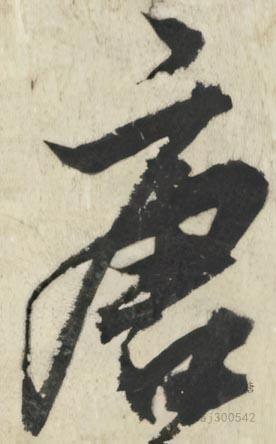 唐
j300542